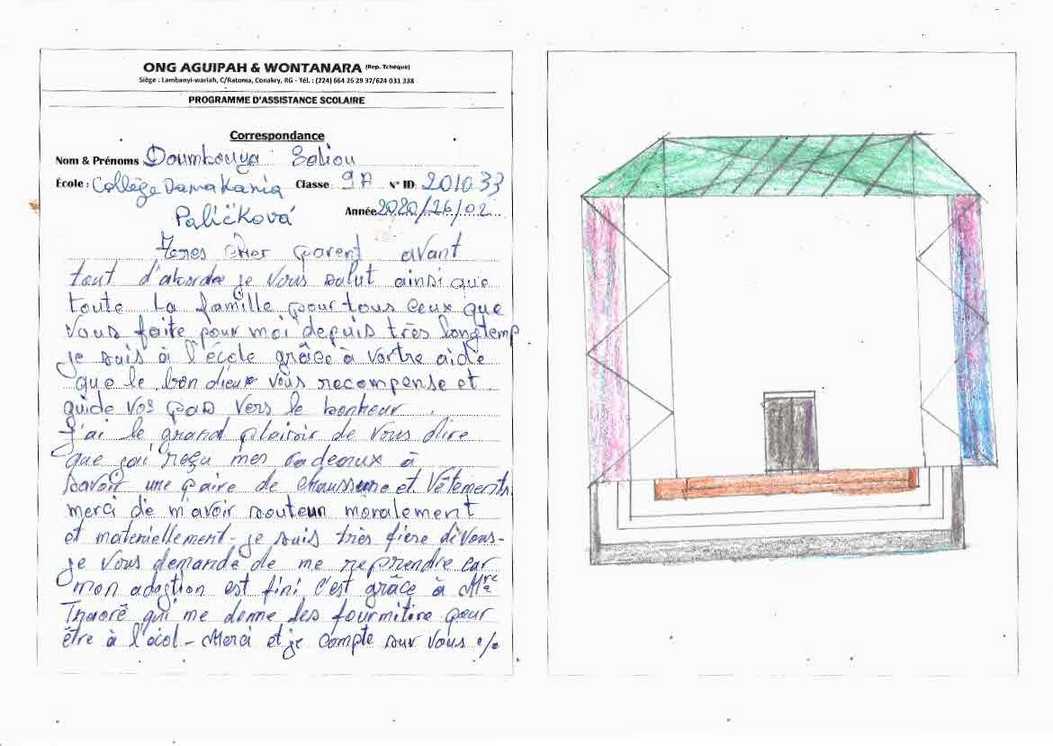 ONG AGUIPAH & WONTANARA (Rep. Tchèque)
Siège : Lambanyi-wariah, C/Ratoma, Conakry, RG - Tél. : (224) 664 26 29 37/624 031 338
PROGRAMME D'ASSISTANCE SCOLAIRE
Correspondance
Nom & Prénoms Doumbouya Saliou
École : Collège Damakania Classe 9A N° ID: 201033
Paličková Année 2020/26/02
Tres cher parent avant
tout d'aborde je vous salut ainsi que
toute la famille pour tous ceux que
vous faite pour moi depuis très longtemp
je suis à l'école grâce à vortre aide
que le bon dieux vous recompense et
guide vos pas vers le bonheur.
J'ai le grand plaisir de vous dire
que j'ai reçu mes cadeaux à
savoir une paire de chaussure et vêtements
merci de m'avoir souteun moralement
et materiellement - je suis très fière de vous -
je vous demande de me reprendre car
mon adoption est fini c'est grâce à Mre
Traoré qui me donne des fourmitire pour
être à l'écol - Merci et je compte sur vous %